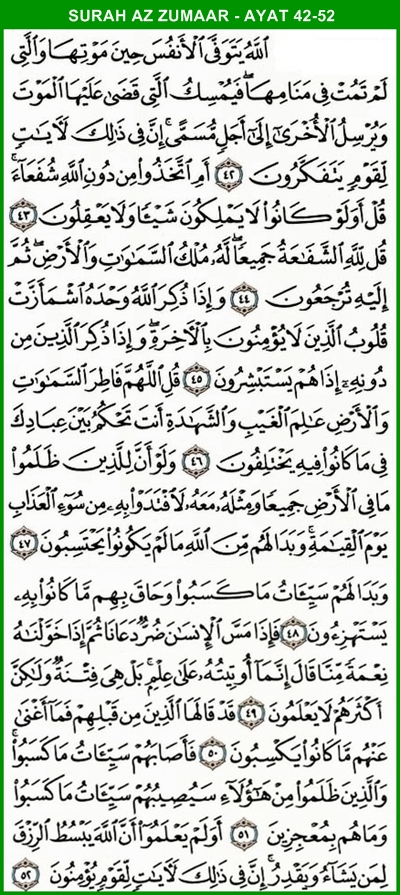 SURAH AZ ZUMAAR - AYAT 42-52
ٱللَّهُ يَتَوَفَّى ٱلْأَنفُسَ حِينَ مَوْتِهَا وَٱلَّتِى
لَمْ تَمُتْ فِى مَنَامِهَا ۖ فَيُمْسِكُ ٱلَّتِى قَضَىٰ عَلَيْهَا ٱلْمَوْتَ
وَيُرْسِلُ ٱلْأُخْرَىٰٓ إِلَىٰٓ أَجَلٍ مُّسَمًّى ۚ إِنَّ فِى ذَٰلِكَ لَـَٔايَـٰتٍ
لِّقَوْمٍ يَتَفَكَّرُونَ ٤٢ أَمِ ٱتَّخَذُوا۟ مِن دُونِ ٱللَّهِ شُفَعَآءَ ۚ
قُلْ أَوَلَوْ كَانُوا۟ لَا يَمْلِكُونَ شَيْـًٔا وَلَا يَعْقِلُونَ ٤٣
قُل لِّلَّهِ ٱلشَّفَـٰعَةُ جَمِيعًا ۖ لَّهُۥ مُلْكُ ٱلسَّمَـٰوَٰتِ وَٱلْأَرْضِ ۖ ثُمَّ
إِلَيْهِ تُرْجَعُونَ ٤٤ وَإِذَا ذُكِرَ ٱللَّهُ وَحْدَهُ ٱشْمَأَزَّتْ
قُلُوبُ ٱلَّذِينَ لَا يُؤْمِنُونَ بِٱلْـَٔاخِرَةِ ۖ وَإِذَا ذُكِرَ ٱلَّذِينَ مِن
دُونِهِۦٓ إِذَا هُمْ يَسْتَبْشِرُونَ ٤٥ قُلِ ٱللَّهُمَّ فَاطِرَ ٱلسَّمَـٰوَٰتِ
وَٱلْأَرْضِ عَـٰلِمَ ٱلْغَيْبِ وَٱلشَّهَـٰدَةِ أَنتَ تَحْكُمُ بَيْنَ عِبَادِكَ
فِى مَا كَانُوا۟ فِيهِ يَخْتَلِفُونَ ٤٦ وَلَوْ أَنَّ لِلَّذِينَ ظَلَمُوا۟
مَا فِى ٱلْأَرْضِ جَمِيعًا وَمِثْلَهُۥ مَعَهُۥ لَٱفْتَدَوْا۟ بِهِۦ مِن سُوٓءِ ٱلْعَذَابِ
يَوْمَ ٱلْقِيَـٰمَةِ ۚ وَبَدَا لَهُم مِّنَ ٱللَّهِ مَا لَمْ يَكُونُوا۟ يَحْتَسِبُونَ ٤٧
وَبَدَا لَهُمْ سَيِّـَٔاتُ مَا كَسَبُوا۟ وَحَاقَ بِهِم مَّا كَانُوا۟ بِهِۦ
يَسْتَهْزِءُونَ ٤٨ فَإِذَا مَسَّ ٱلْإِنسَـٰنَ ضُرٌّ دَعَانَا ثُمَّ إِذَا خَوَّلْنَـٰهُ
نِعْمَةً مِّنَّا قَالَ إِنَّمَآ أُوتِيتُهُۥ عَلَىٰ عِلْمٍۭ ۚ بَلْ هِىَ فِتْنَةٌ وَلَـٰكِنَّ
أَكْثَرَهُمْ لَا يَعْلَمُونَ ٤٩ قَدْ قَالَهَا ٱلَّذِينَ مِن قَبْلِهِمْ فَمَآ أَغْنَىٰ
عَنْهُم مَّا كَانُوا۟ يَكْسِبُونَ ٥٠ فَأَصَابَهُمْ سَيِّـَٔاتُ مَا كَسَبُوا۟ ۚ
وَٱلَّذِينَ ظَلَمُوا۟ مِنْ هَـٰٓؤُلَآءِ سَيُصِيبُهُمْ سَيِّـَٔاتُ مَا كَسَبُوا۟
وَمَا هُم بِمُعْجِزِينَ ٥١ أَوَلَمْ يَعْلَمُوٓا۟ أَنَّ ٱللَّهَ يَبْسُطُ ٱلرِّزْقَ
لِمَن يَشَآءُ وَيَقْدِرُ ۚ إِنَّ فِى ذَٰلِكَ لَـَٔايَـٰتٍ لِّقَوْمٍ يُؤْمِنُونَ ٥٢